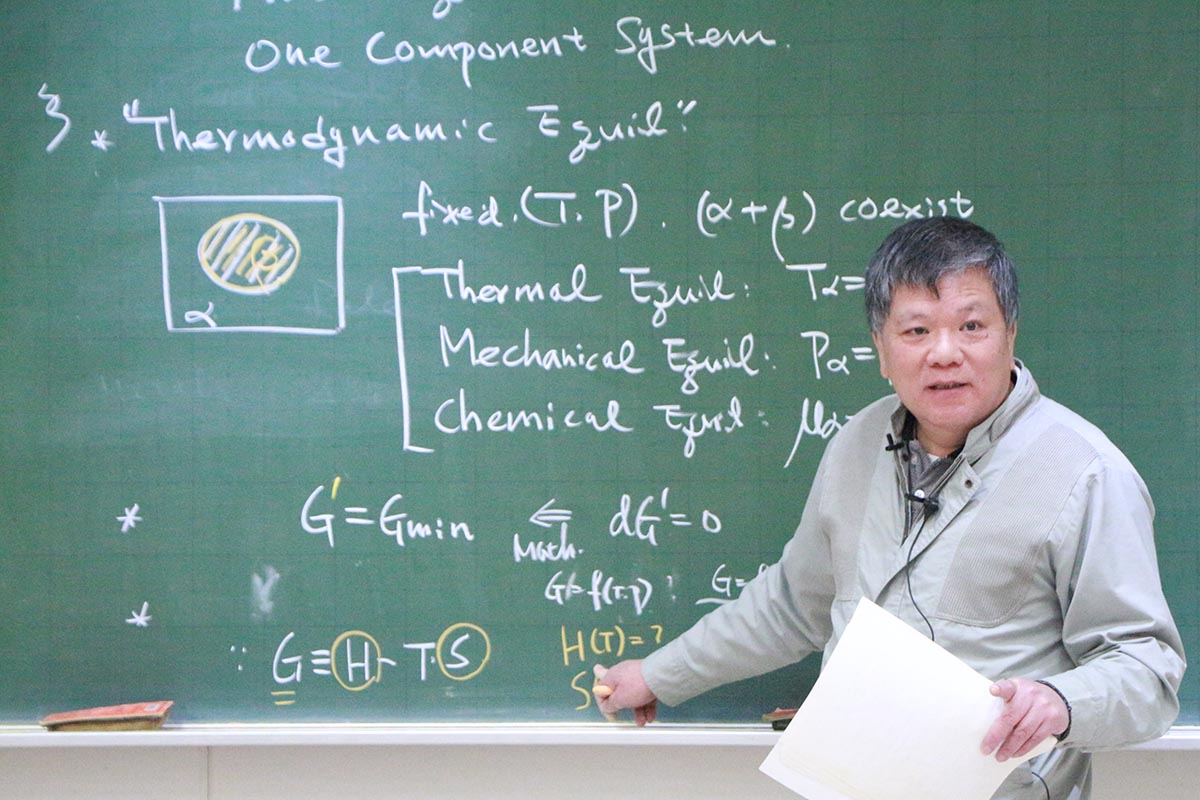 One Component System.
} * "Thermodynamic Equil."
fixed. (T. P). (α+β) coexist
β
α
Thermal Equil: Tα=
Mechanical Equil: Pα=
Chemical Equil: μα=
* G' = Gmin ⇐ dG' = 0
Math.
G = f(T.P) : G =
*
∵ G ≡ H - T.S
H(T) = ?
S